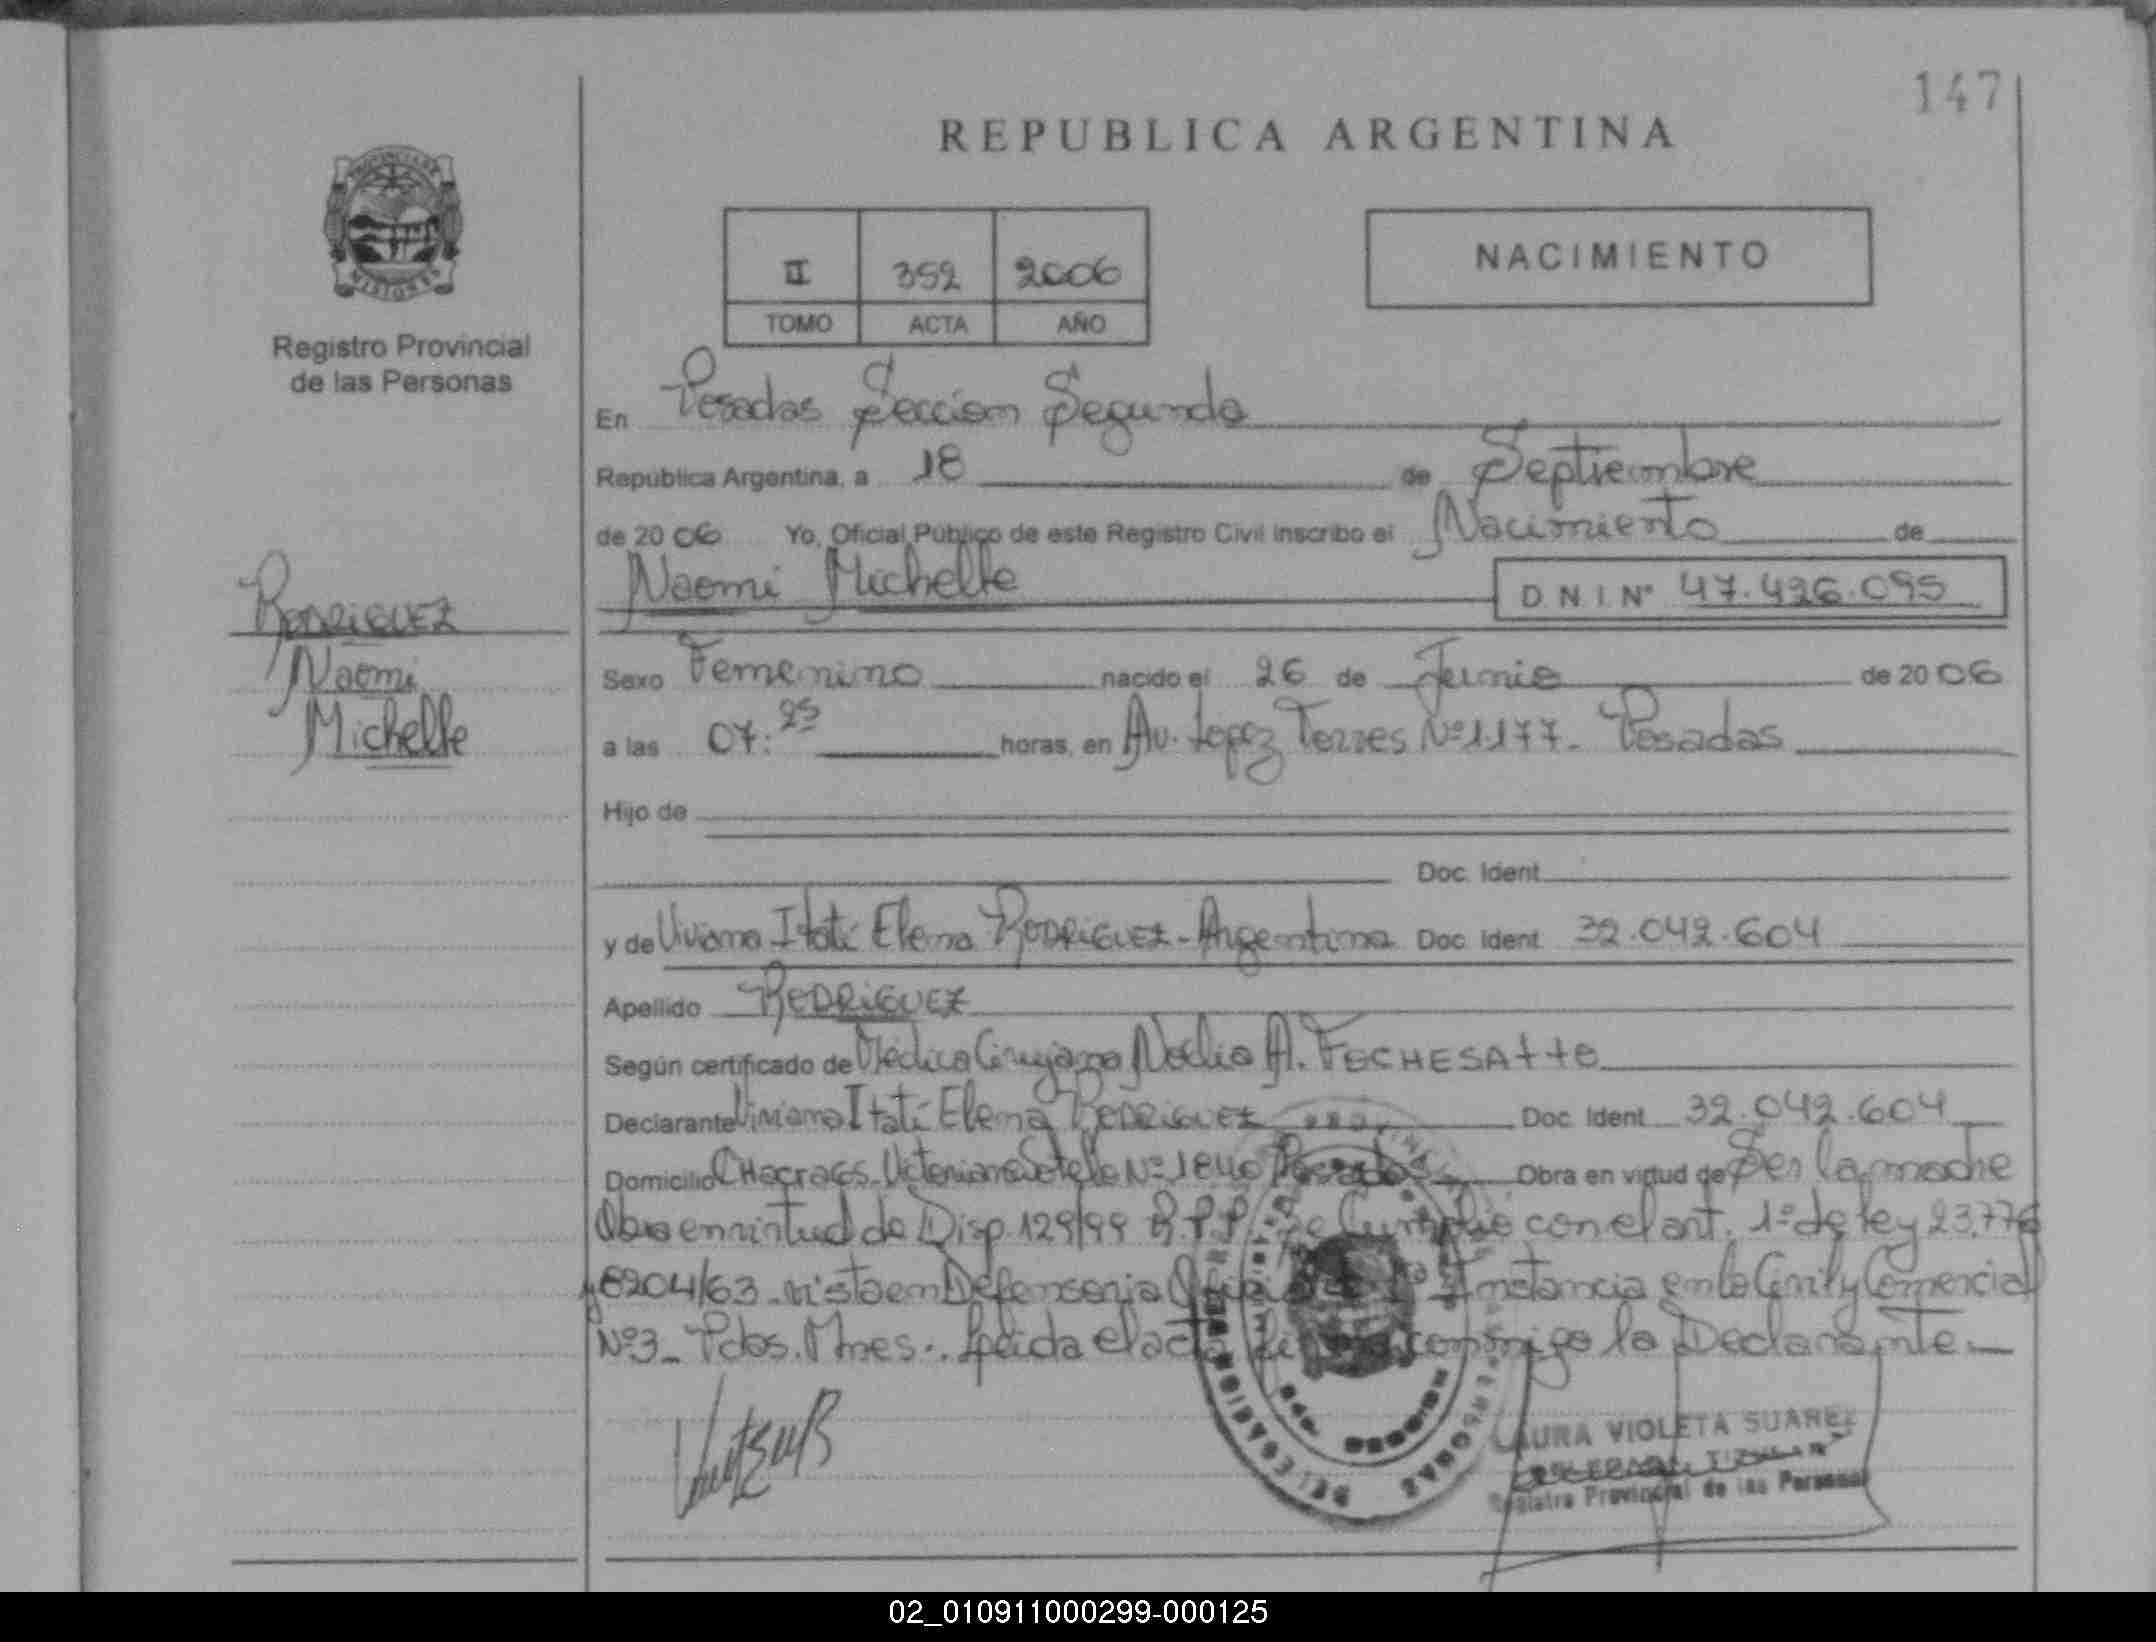 147
REPUBLICA ARGENTINA
PROVINCIA DE
MISIONES
Registro Provincial
de las Personas
II 352 2006
TOMO ACTA AÑO
NACIMIENTO
En Posadas Seccion Segunda
República Argentina, a 18 de Septiembre
de 2006 Yo, Oficial Público de este Registro Civil inscribo el Nacimiento de
Naomi Michelle D.N.I. Nº 47.426.095
RODRIGUEZ
Naomi
Michelle
Sexo Femenino nacido el 26 de Junio de 2006
a las 07:25 horas, en Av. Lopez Torres Nº 1177- Posadas
Hijo de
Doc. Ident
y de Viviana Itatí Elena RODRIGUEZ - Argentina Doc Ident 32.042.604
Apellido RODRIGUEZ
Según certificado de Médica Cirujana Noelia A. FOCHESATTO
Declarante Viviana Itatí Elena RODRIGUEZ Doc Ident 32.042.604
Domicilio Nº 1840 Posadas Obra en virtud de Ser la madre
Obra en virtud de Disp. 129/99 R.P.P. Se Cumplió con el art. 1º de ley 23.776
y 8204/63 - vista en Defensoria Instancia en lo Civil y Comercial
Nº3 - Pdas. Mnes-. Leida el acta conmigo la Declarante.-
LAURA VIOLETA SUAREZ
Registro Provincial de las Personas
02_010911000299-000125